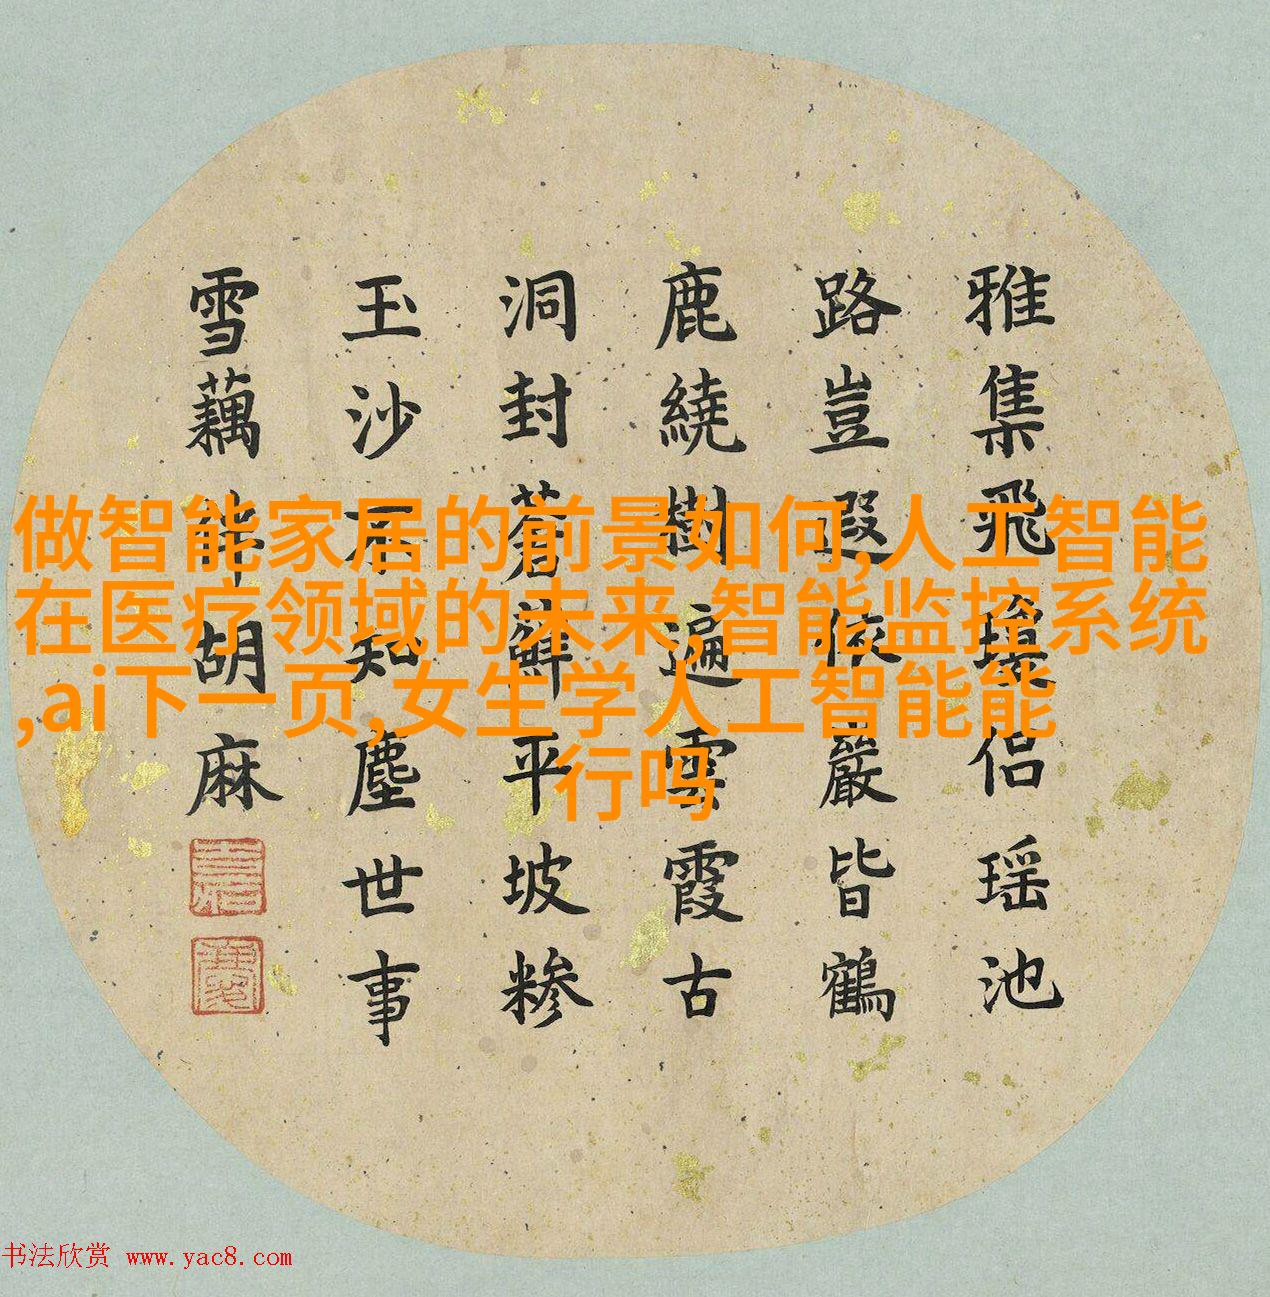 雅集飛瓊侶瑶池
路豈遐依巖皆鶴
鹿繞樹遍雲霞古
洞封蒼蘚平坡糝
玉沙不知塵世事
雪藕胡麻
做智能家居的前景如何,人工智能
在医疗领域的未来,智能监控系统
,ai下一页,女生学人工智能能
行吗
书法欣赏 www.yac8.com